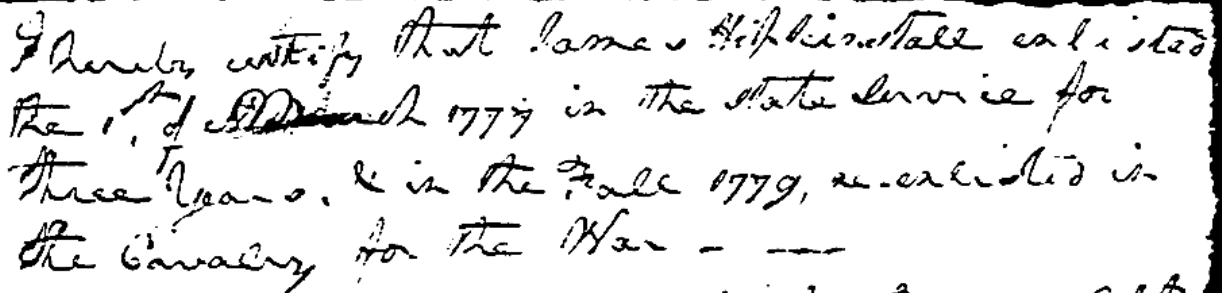 I hereby certify that James Hipkinstall enlisted
the 1st of March 1777 in the State Service for
three Years. & in the Fall 1779, re-enlisted in
the Cavalry for the War - —